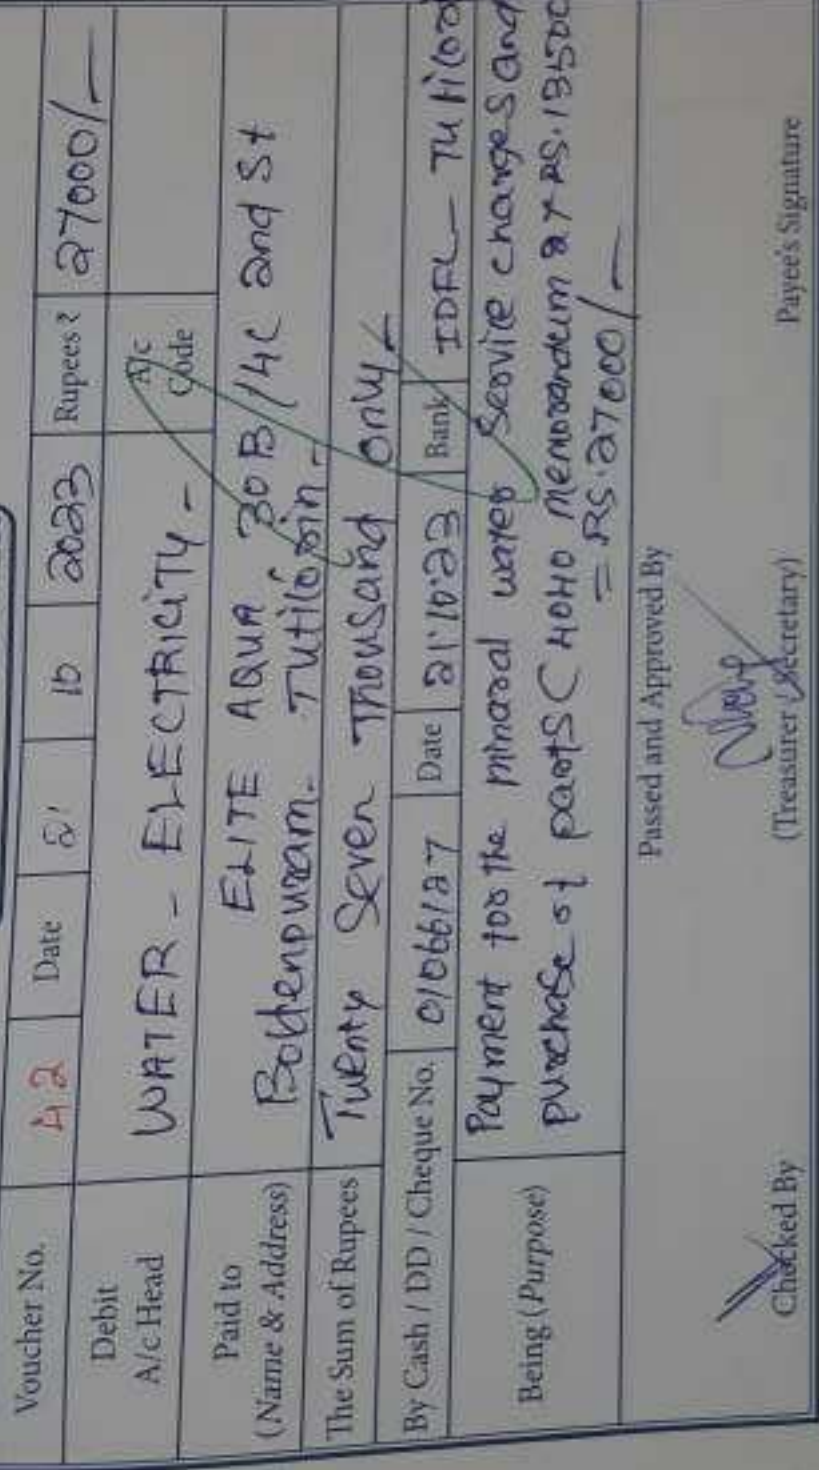 Voucher No. 42 Date 21 10 2023 Rupees ? 27000/-
Debit A/c Head WATER - ELECTRICITY - A/c Code
Paid to (Name & Address) ELITE AQUA 30B/4C 2nd St
Tuticorin -
The Sum of Rupees Twenty Seven Thousand only -
By Cash / DD / Cheque No. 01066127 Date 21.10.23 Bank IDFC - Tuticor
Being (Purpose) Payment for the minaral water Service charges and
purchase of parts ( 4040 memorandum 2 x RS. 13500
= RS. 27000/-
Passed and Approved By
Checked By (Treasurer / Secretary) Payee's Signature